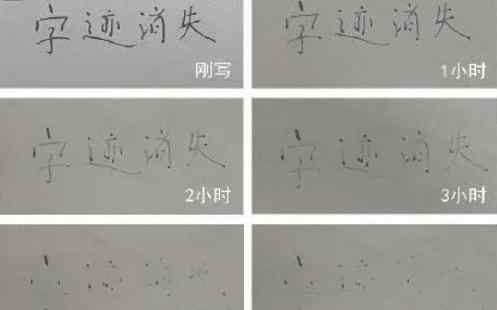 字迹消失
刚写
字迹消失
1小时
字迹消失
2小时
字迹消失
3小时